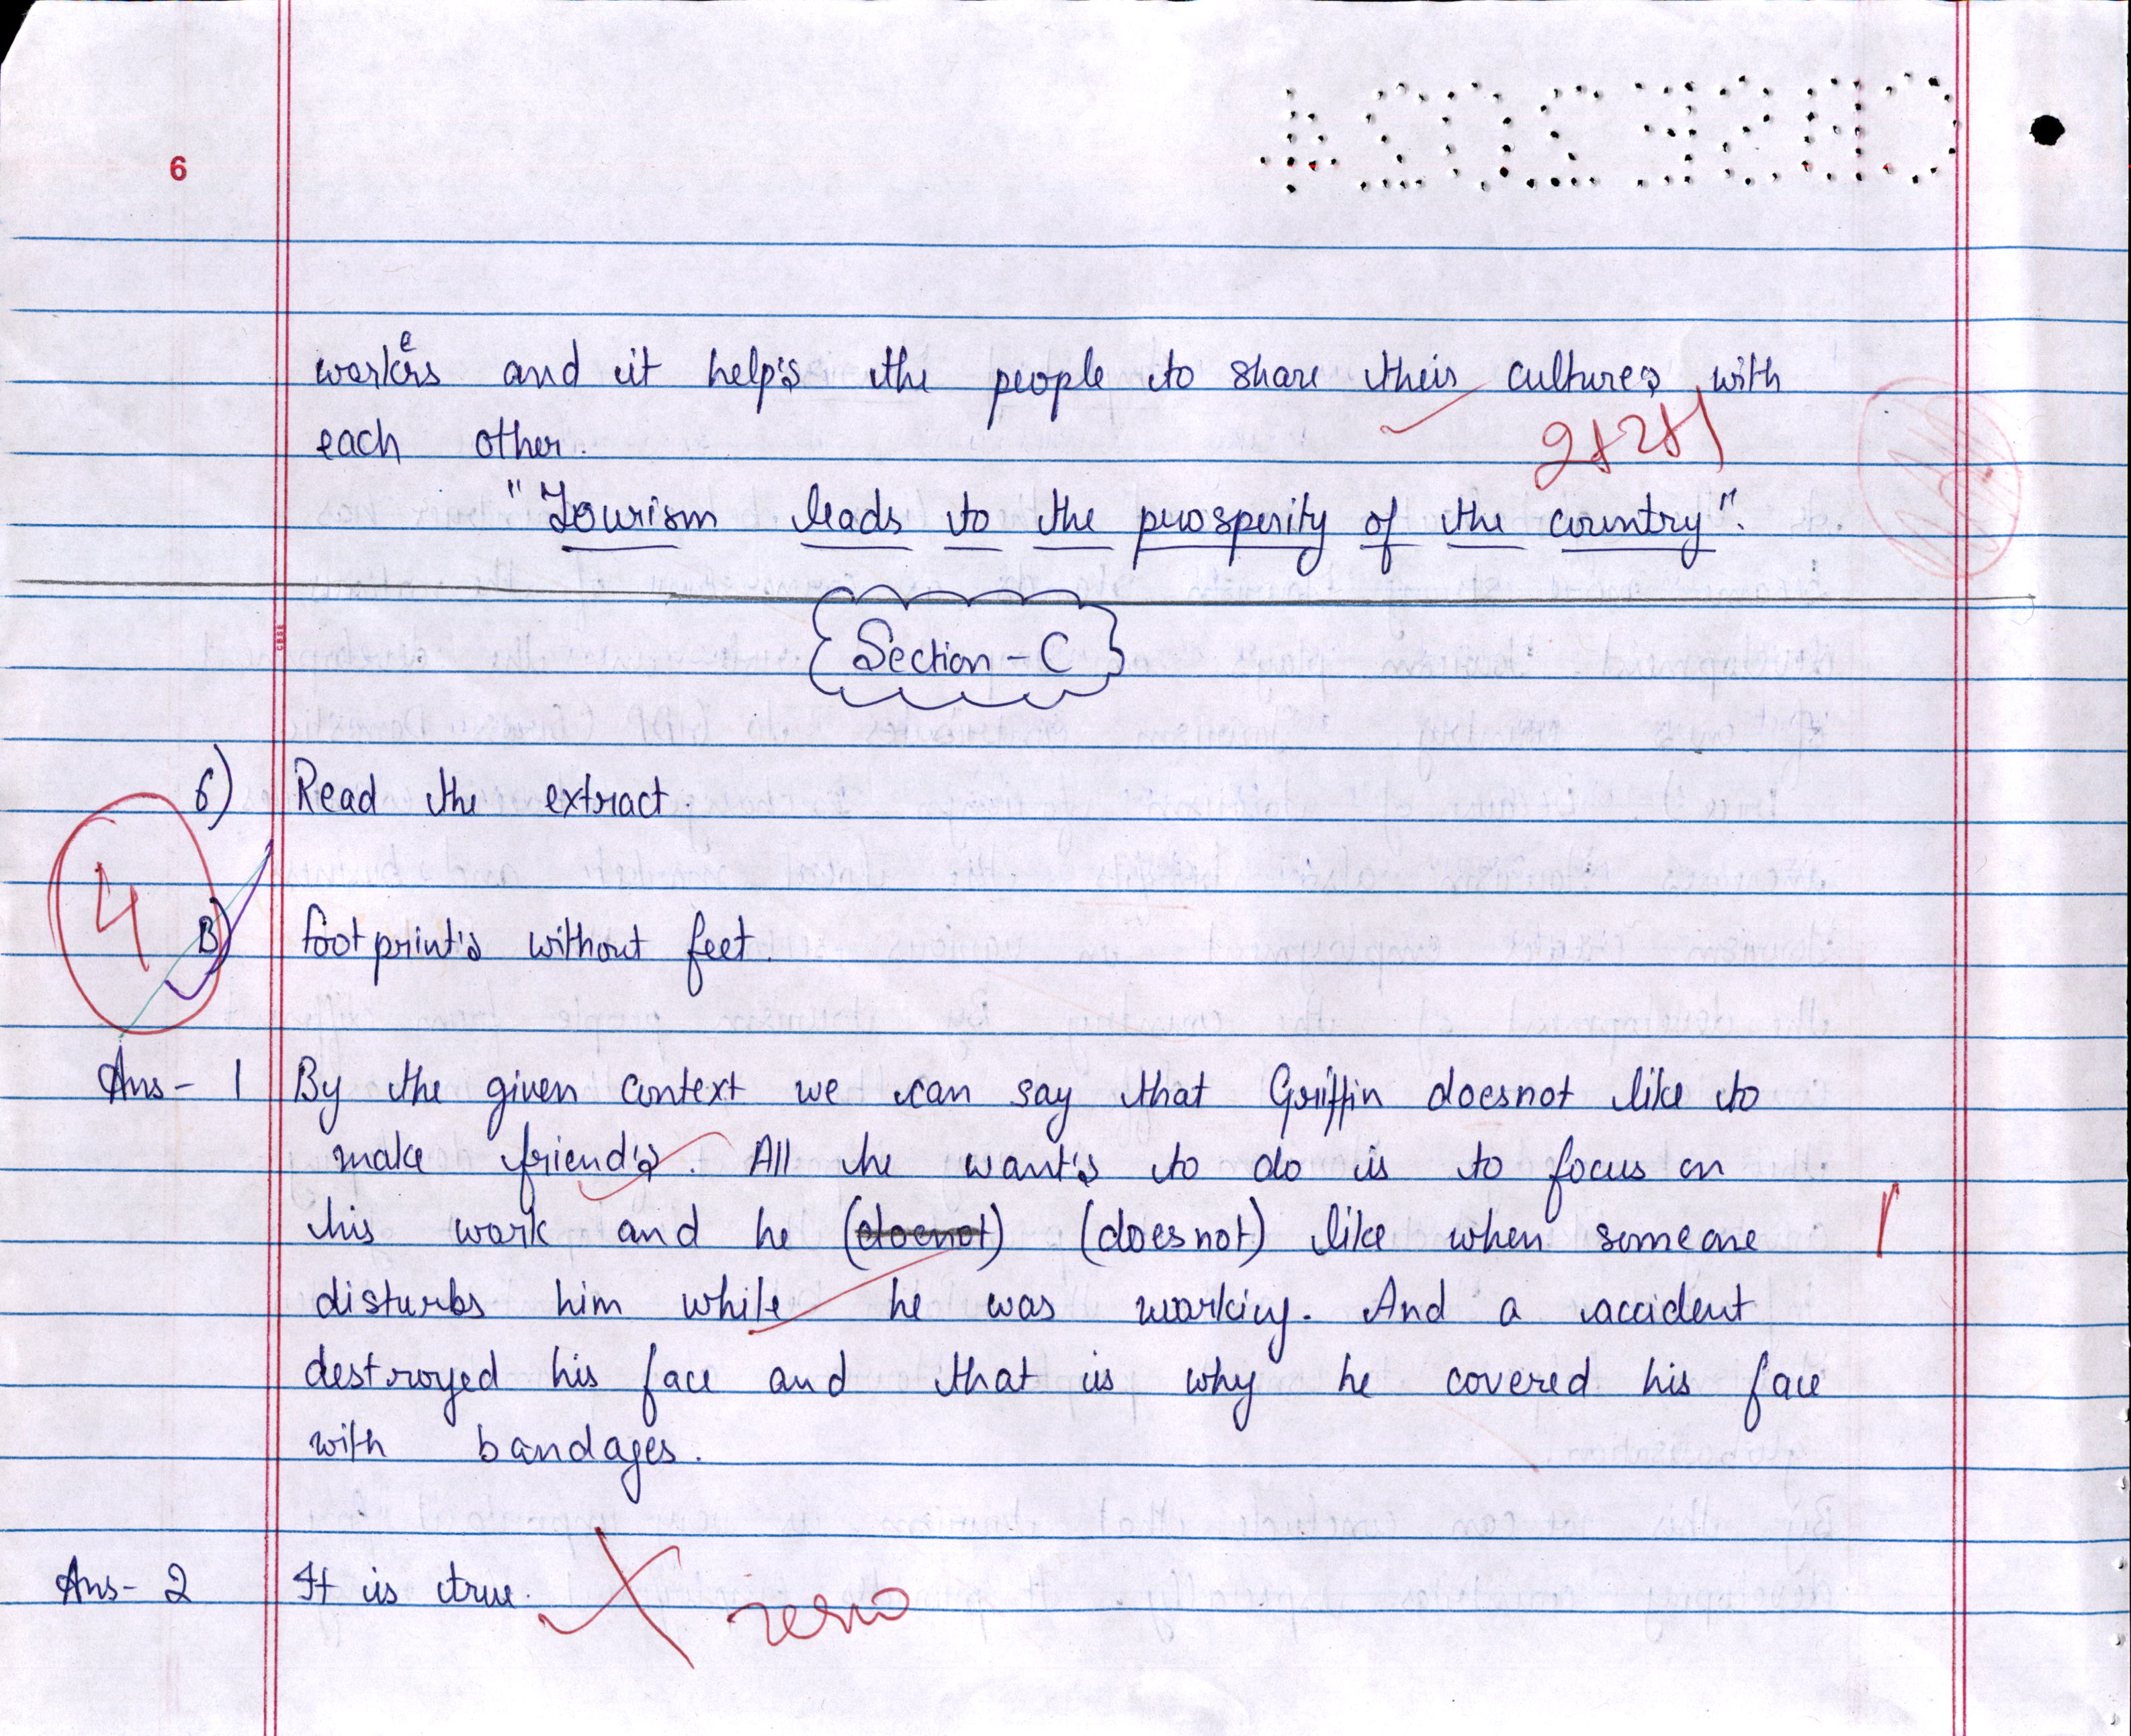 CBSE 2024
6
workers and it help's the people to share their cultures with
each other.
2+2+1
"Tourism leads to the prosperity of the country".
Section - C
6) Read the extract.
4
B) footprint's without feet.
Ans - 1 By the given context we can say that Griffin doesnot like to
make friend's. All he want's to do is to focus on
his work and he (doenot) (doesnot) like when someone
1
disturbs him while he was working. And a accident
destroyed his face and that is why he covered his face
with bandages.
Ans - 2 It is true.
zero